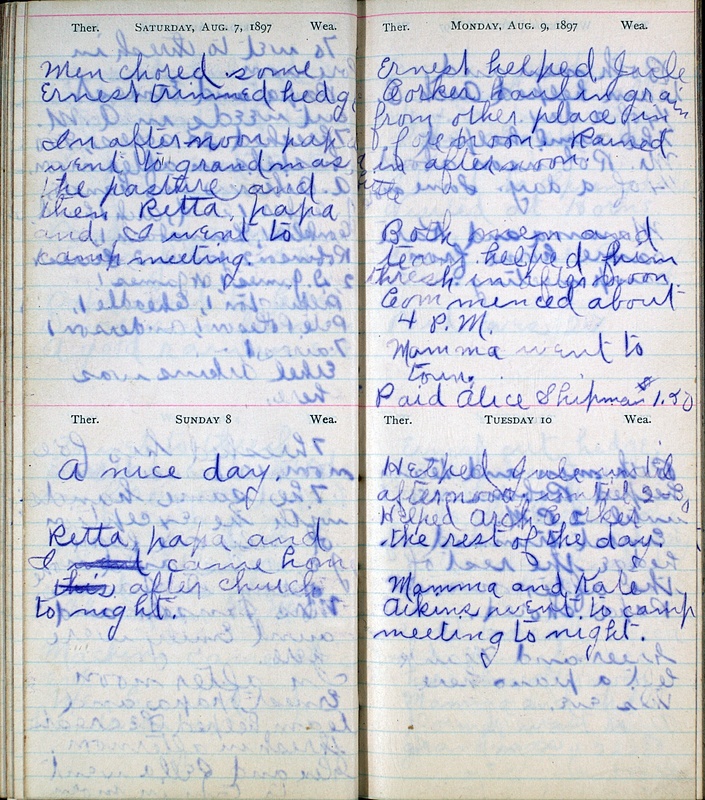 Ther. SATURDAY, AUG. 7, 1897 Wea.
Men chored some
Ernest trimmed hedg
In afternoon papa
went to grandmas
the pasture and
then Retta, papa
and I went to
camp meeting.
Ther. SUNDAY 8 Wea.
A nice day.
Retta papa and
I went came hom
this after church
to night.
Ther. MONDAY, AUG. 9, 1897 Wea.
Ernest helped Jacke
Corker haul in grain
from other place in
forenoon. Rained
in afternoon
Both men and
team helped from
thresh in afternoon
Commenced about
4 P.M.
Mamma went to
town.
Paid Alice Shipman $1.50
Ther. TUESDAY 10 Wea.
Helped until
afternoon
Helped Arch
the rest of the day.
Mamma and Kate
Aikins went to camp
meeting to night.